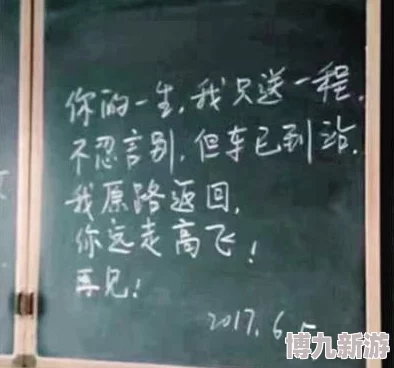 你的一生,我只送一程.
不忍言别,但车已到站.
我原路返回,
你远走高飞!
再见!
2017.6.5
博九新游